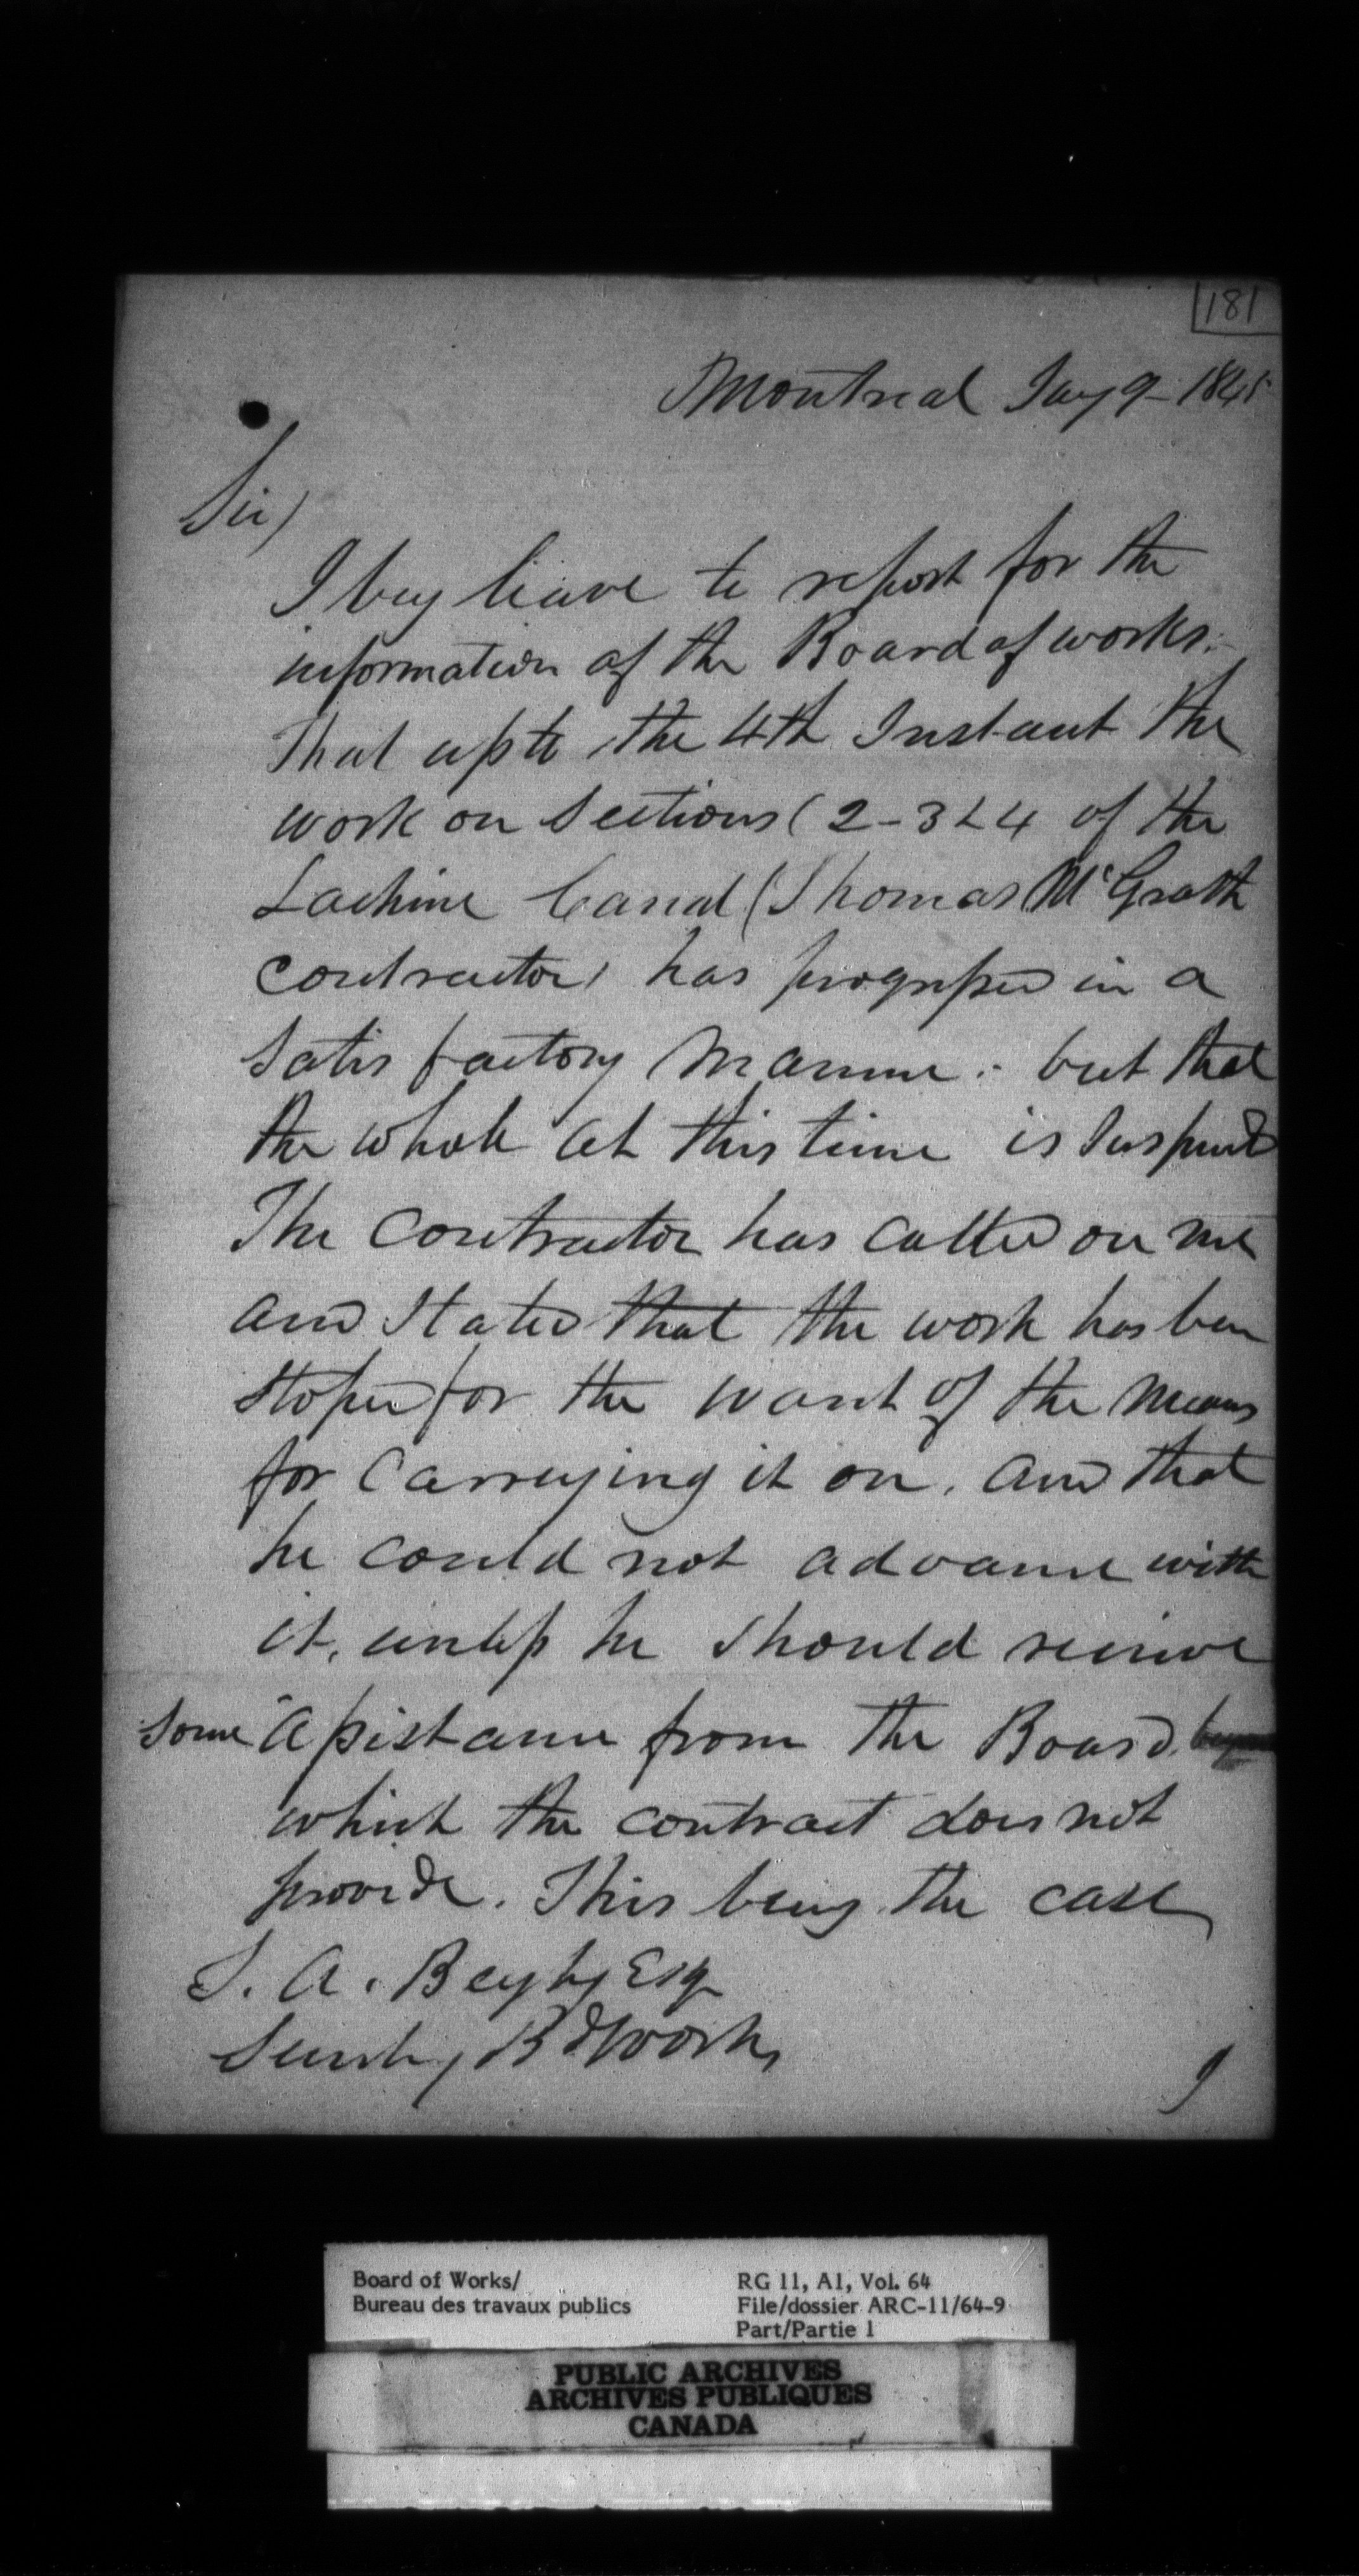 181
Montreal Jany 9 - 1845
Sir)
I beg leave to report for the
information of the Board of works.
That up to the 4th Instant the
work on Sections (2-3 & 4 of the
Lachine Canal (Thomas McGrath
contractor) has progressed in a
satisfactory manner: but that
the whole at this time is suspend
The contractor has called on me
and stated that the work has been
stoped for the want of the means
for carrying it on. and that
he could not advance with
it, unless he should receive
some assistance from the Board.
which the contract does not
provide. This being the case
T. A. Begly Esq
Secrety Bd Works
I
Board of Works/
Bureau des travaux publics
RG 11, A1, Vol. 64
File/dossier ARC-11/64-9
Part/Partie 1
PUBLIC ARCHIVES
ARCHIVES PUBLIQUES
CANADA